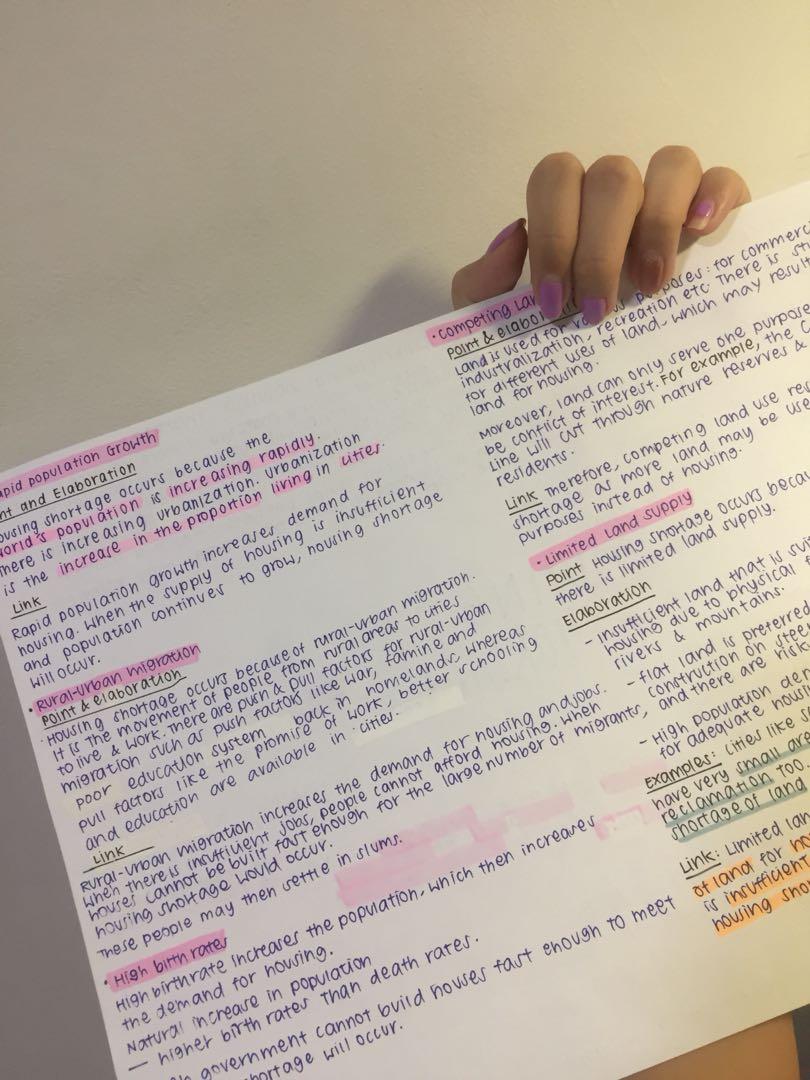 Rapid population Growth
Point and Elaboration
Housing shortage occurs because the
world's population is increasing rapidly.
There is increasing urbanization. Urbanization
is the increase in the proportion living in cities.
Link
Rapid population growth increases demand for
housing. When the supply of housing is insufficient
and population continues to grow, housing shortage
will occur.
• Rural-urban migration
Point & elaboration
Housing shortage occurs because of rural-urban migration.
It is the movement of people from rural areas to cities
to live & work. There are push & pull factors for rural-urban
migration such as push factors like war, famine and
poor education system back in homelands, whereas
pull factors like the promise of work, better schooling
and education are available in cities.
Link
Rural-urban migration increases the demand for housing and jobs.
When there is insufficient jobs, people cannot afford housing. When
houses cannot be built fast enough for the large number of migrants,
housing shortage would occur.
These people may then settle in slums.
• High birth rates
High birthrate increases the population, which then increases
the demand for housing.
Natural increase in population
— higher birth rates than death rates.
government cannot build houses fast enough to meet
shortage will occur.
• Competing
Point &
Land is used for purposes: for
industrialization, recreation etc. There is
for different uses of land, which may result
land for housing.
Moreover, land can only serve one purpose
be conflict of interest. For example, the
Line will cut through nature reserves &
residents.
Link Therefore, competing land use
shortage as more land may be
purposes instead of housing.
• Limited Land supply
Point Housing shortage occurs
there is limited land supply.
Elaboration
- Insufficient land that is
housing due to physical
rivers & mountains.
- flat land is preferred
construction on
and there are
- High population
for adequate
Examples: Cities like
have very small
reclamation too.
shortage of land
Link: Limited
of land for
is insufficient
housing